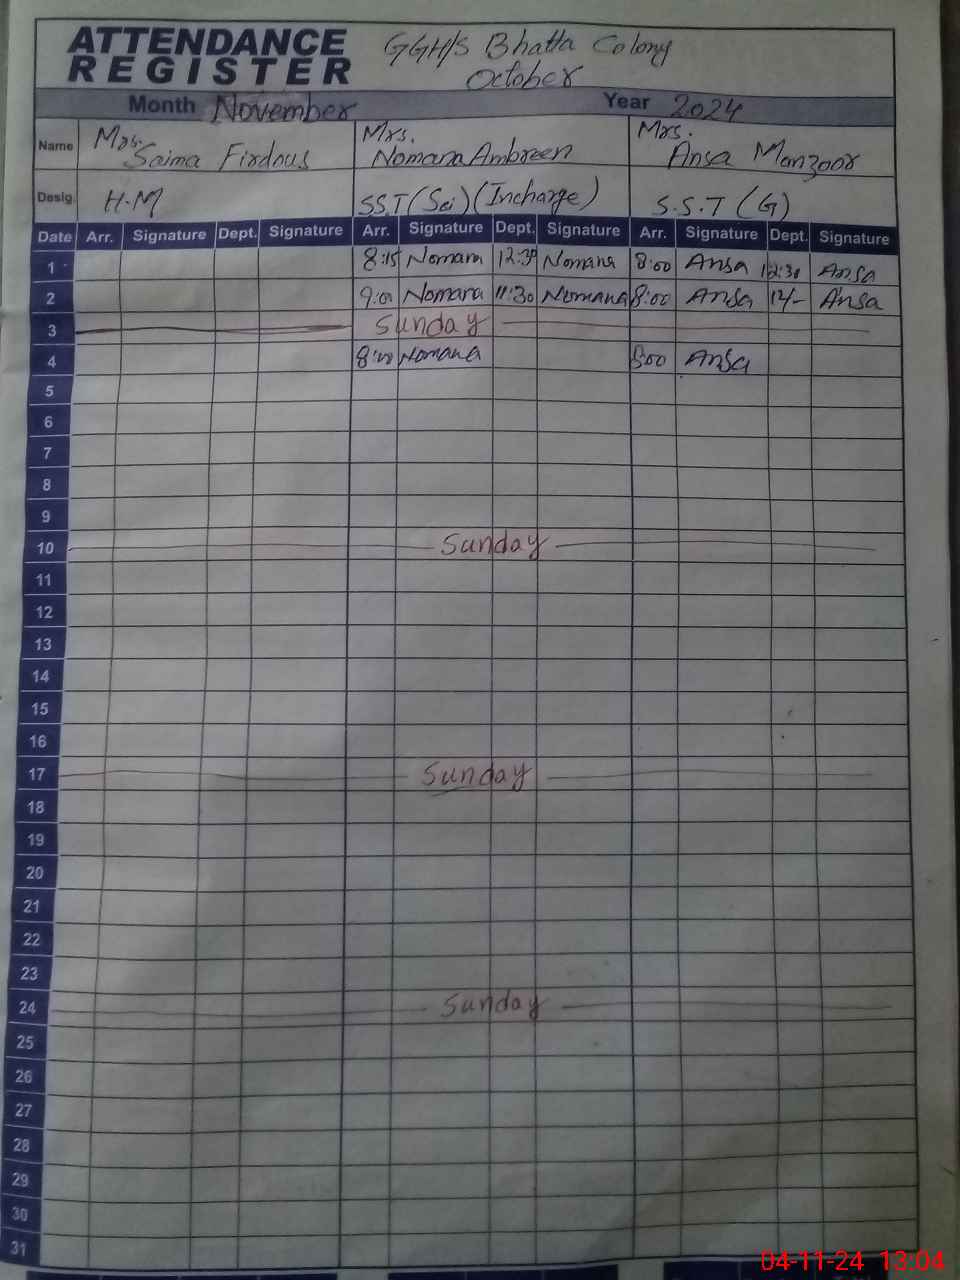 ATTENDANCE GGH/S Bhatta Colony
REGISTER October
Month November Year 2024
Name Mrs. Saima Firdous Mrs. Nomana Ambreen Mrs. Ansa Manzoor
Desig. H.M SST (Sci) (Incharge) S.S.T (G)
Date Arr. Signature Dept. Signature Arr. Signature Dept. Signature Arr. Signature Dept. Signature
1 8:15 Nomana 12:30 Nomana 8:00 Ansa 12:30 Ansa
2 9:00 Nomana 11:30 Nomana 8:00 Ansa 12/- Ansa
3 Sunday
4 8:00 Nomana 8:00 Ansa
5
6
7
8
9
10 Sunday
11
12
13
14
15
16
17 Sunday
18
19
20
21
22
23
24 Sunday
25
26
27
28
29
30
31
04-11-24 13:04